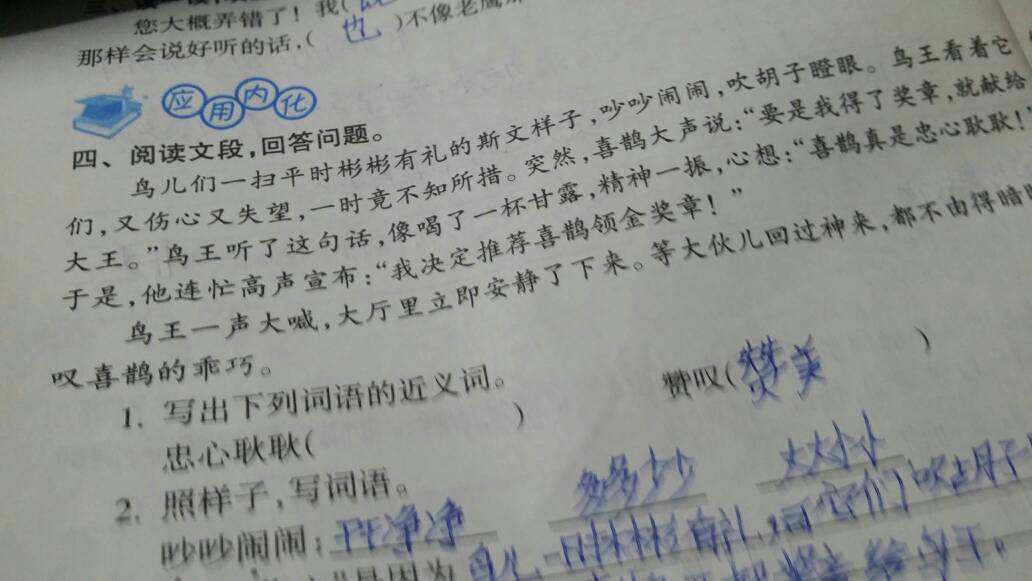 您大概弄错了!我(
那样会说好听的话,( 也 )不像老鹰那
应用内化
四、阅读文段,回答问题。
鸟儿们一扫平时彬彬有礼的斯文样子,吵吵闹闹,吹胡子瞪眼。鸟王看着它
们,又伤心又失望,一时竟不知所措。突然,喜鹊大声说:“要是我得了奖章,就献给
大王。”鸟王听了这句话,像喝了一杯甘露,精神一振,心想:“喜鹊真是忠心耿耿!
于是,他连忙高声宣布:“我决定推荐喜鹊领金奖章!”
鸟王一声大喊,大厅里立即安静了下来。等大伙儿回过神来,都不由得暗暗
叹喜鹊的乖巧。
1. 写出下列词语的近义词。
忠心耿耿( ) 赞叹( 赞美 )
2. 照样子,写词语。
吵吵闹闹: 干干净净 多多少少 大大小小
是因为